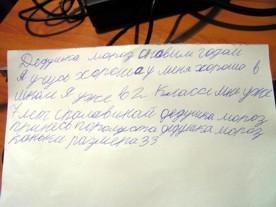 Дедушка мороз сновим годам
Я учус хорошо у меня хорошо в
школи Я уже во 2 класси мне уже
7 лет споловинай дедушка мороз
принеси пожалуста дедушка мороз
канки размера 33